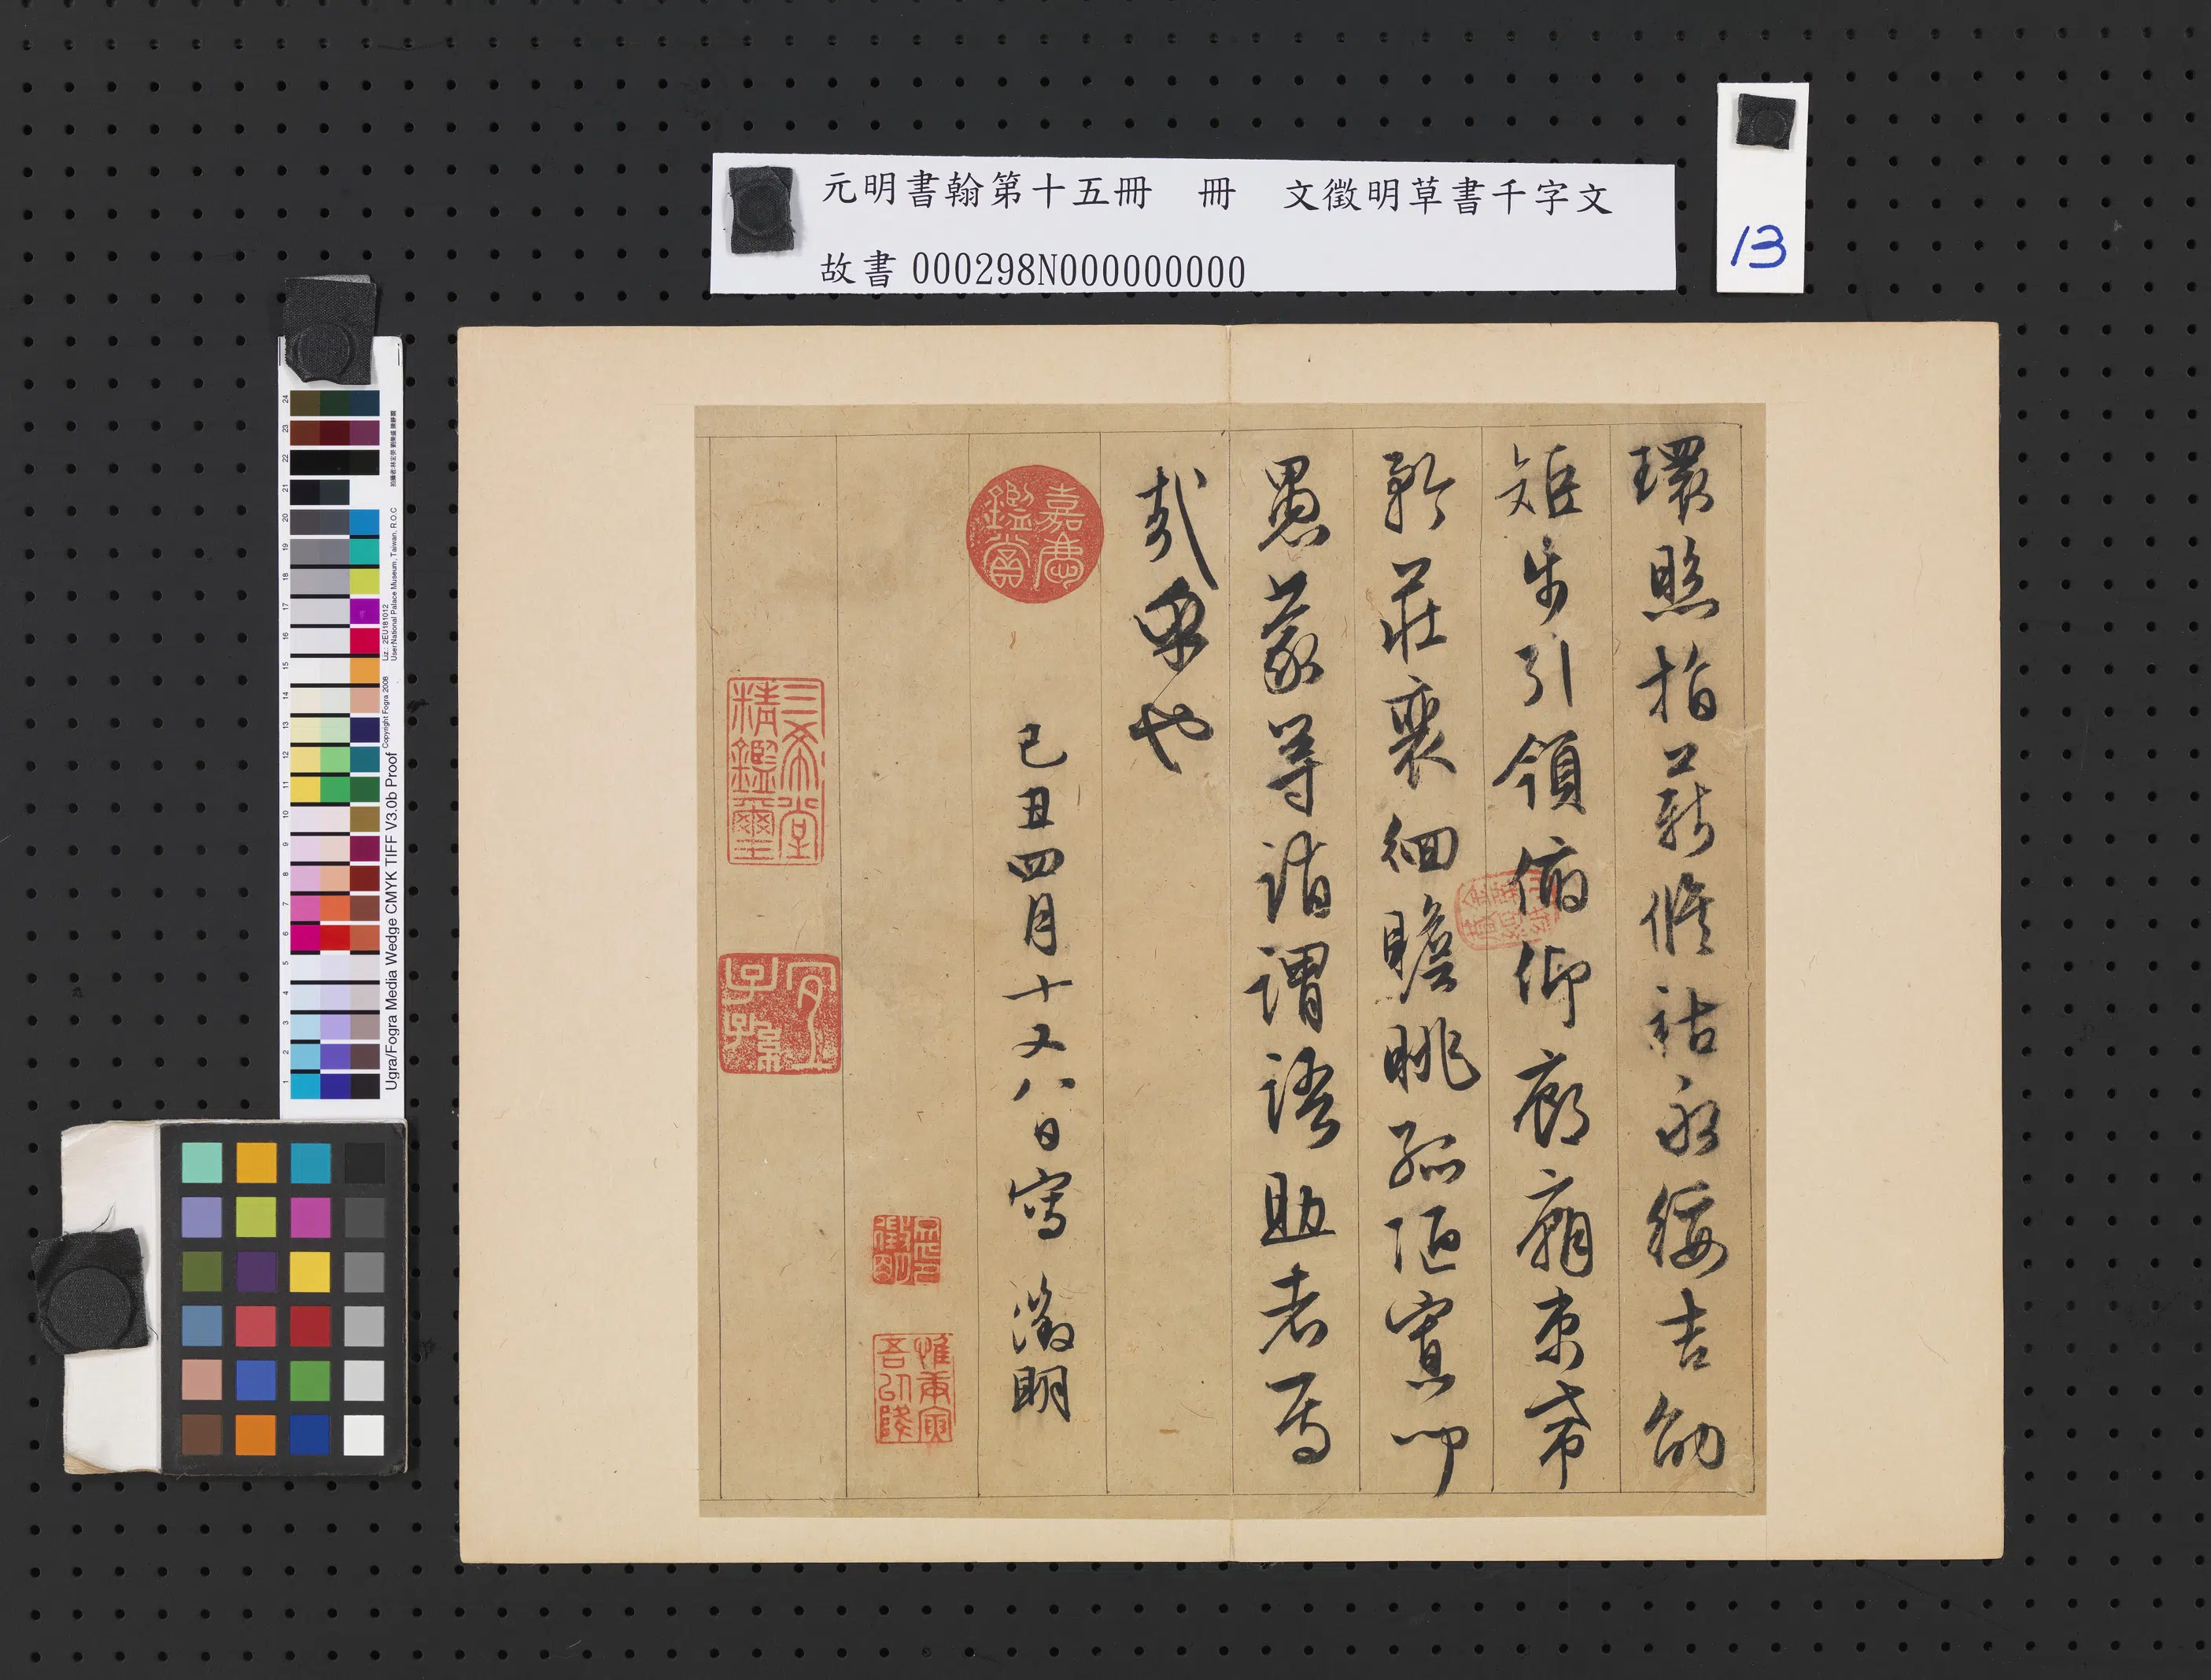 元明書翰第十五冊 冊 文徵明草書千字文
故書 000298N000000000
13
環照指薪脩祜永綏吉劭
矩步引領俯仰廊廟束帶
矜莊裴徊瞻眺孤陋寡聞
愚蒙等誚謂語助者焉
哉乎也
己丑四月十又八日寫 徵明
嘉慶鑑賞
三希堂精鑑璽
宜子孫
惟庚寅吾以降
Ugra/Fogra Media Wedge CMYK TIFF V3.0b Proof
Copyright Fogra 2008
Liz.: 2EU181012
User:National Palace Museum, Taiwan, R.O.C
1 2 3 4 5 6 7 8 9 10 11 12 13 14 15 16 17 18 19 20 21 22 23 24